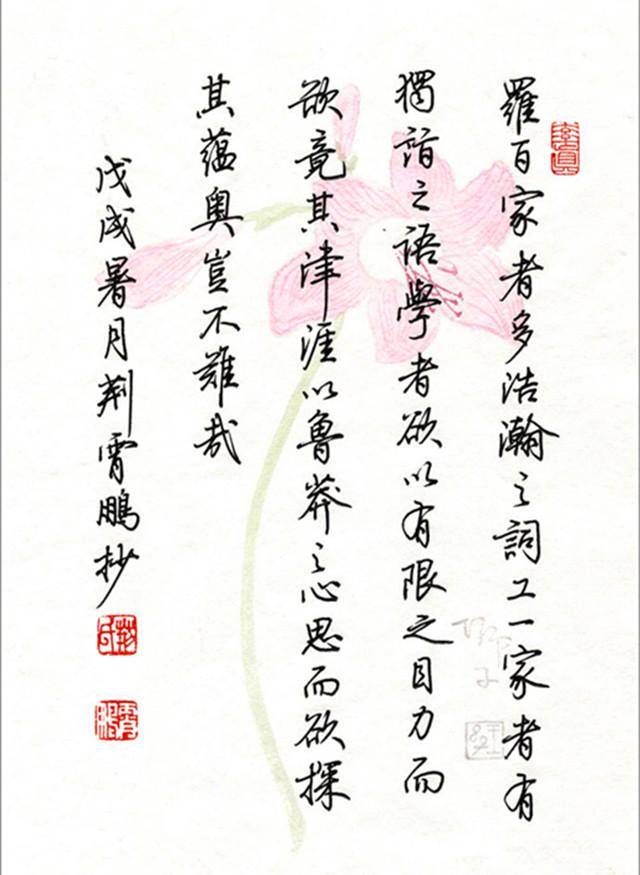 羅百家者多浩瀚之詞工一家者有
獨詣之語學者欲以有限之目力而
欲竟其津涯以魯莽之心思而欲探
其蘊奧豈不難哉
戊戌暑月荊霄鵬抄